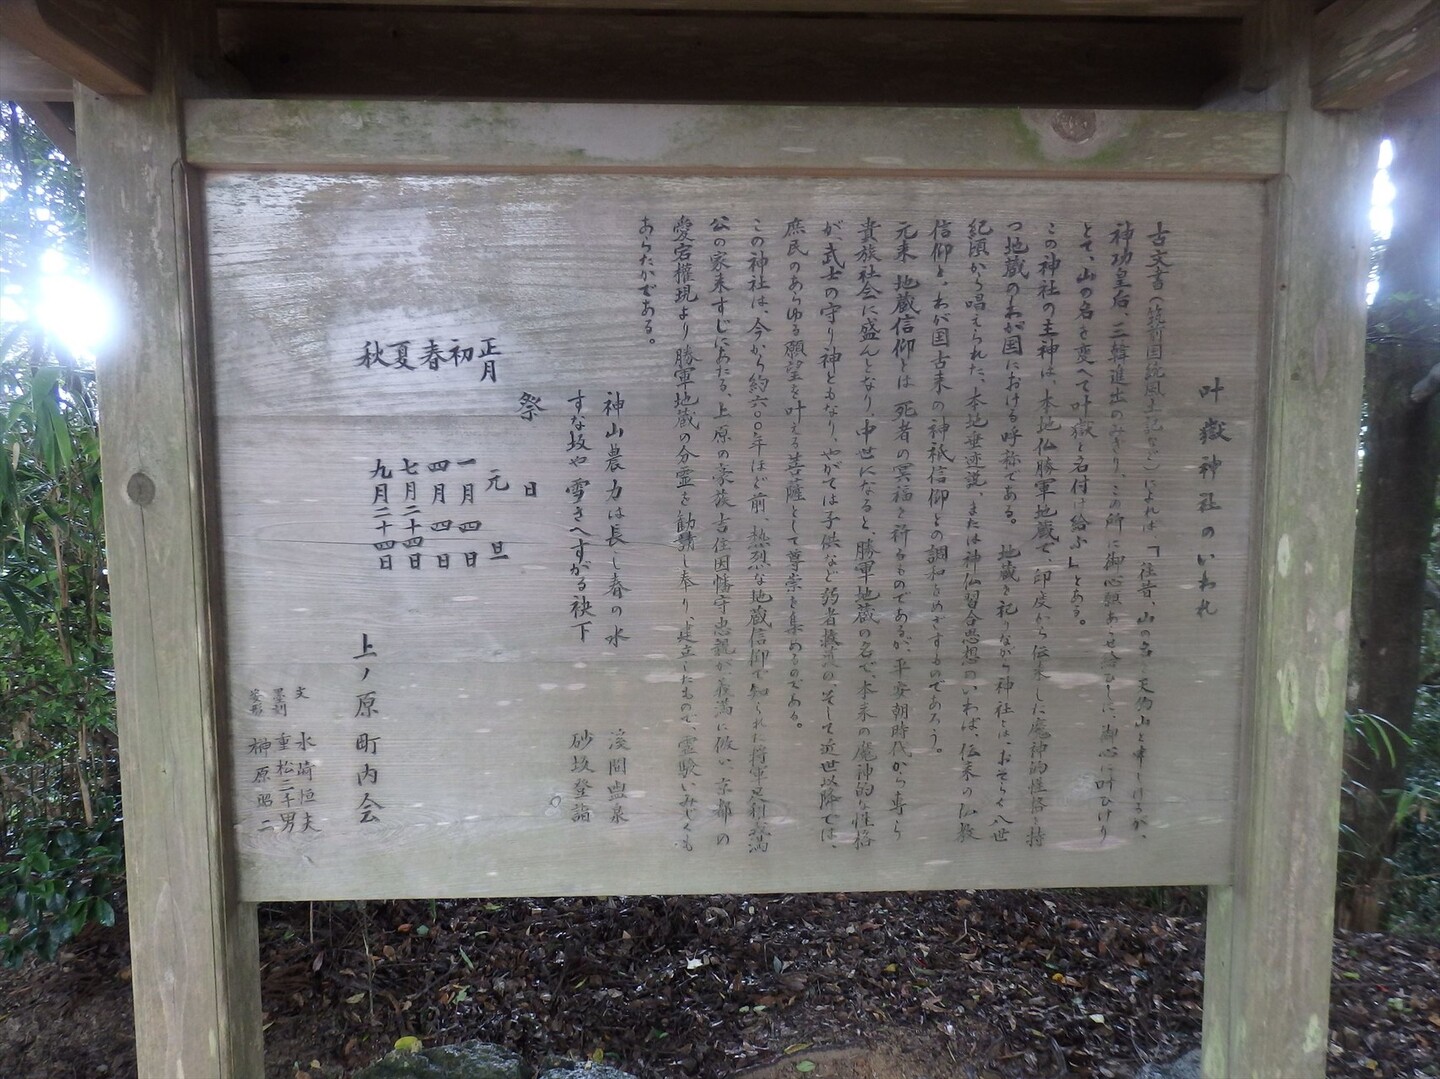 叶嶽神社のいわれ
古文書(筑前国続風土記など)によれば、「往昔、山の名を天狗山と申しけるが、
神功皇后、三韓進出のみぎり、この所に御心願あらせ給ひしに、御心に叶ひけり
とて、山の名を変へて叶嶽と名付け給ふ」とある。
この神社の主神は、本地仏勝軍地蔵で、印度から伝来した魔神的性格を持
つ地蔵のわが国における呼称である。地蔵を祀りながら神社とは、おそらく八世
紀頃から唱えられた、本地垂迹説、または神仏習合思想のいわば、伝来の仏教
信仰と、わが国古来の神祇信仰との調和をめざすものであろう。
元来 地蔵信仰とは 死者の冥福を祈るものであるが、平安朝時代から専ら
貴族社会に盛んとなり、中世になると、勝軍地蔵の名で、本来の魔神的な性格
が、武士の守り神ともなり、やがては子供など弱者救済の、そして近世以降では、
庶民のあらゆる願望を叶える菩薩として尊崇を集めるのである。
この神社は、今から約六〇〇年ほど前、熱烈な地蔵信仰で知られた将軍足利義満
公の家来すじにあたる、上原の豪族吉住因幡守忠親が義満に倣い、京都の
愛宕權現より勝軍地蔵の分霊を勧請し奉り、建立したもので、霊験いみじくも
あらたかである。
神山農力は長し春の水 渓間幽泉
すな坂や雪さへすがる袂下 砂坂登詣
祭日
正月 元旦
初 一月四日
春 四月四日
夏 七月二十四日
秋 九月二十四日
上ノ原町内会
文 水崎恒夫
重松二千男
榊原昭二